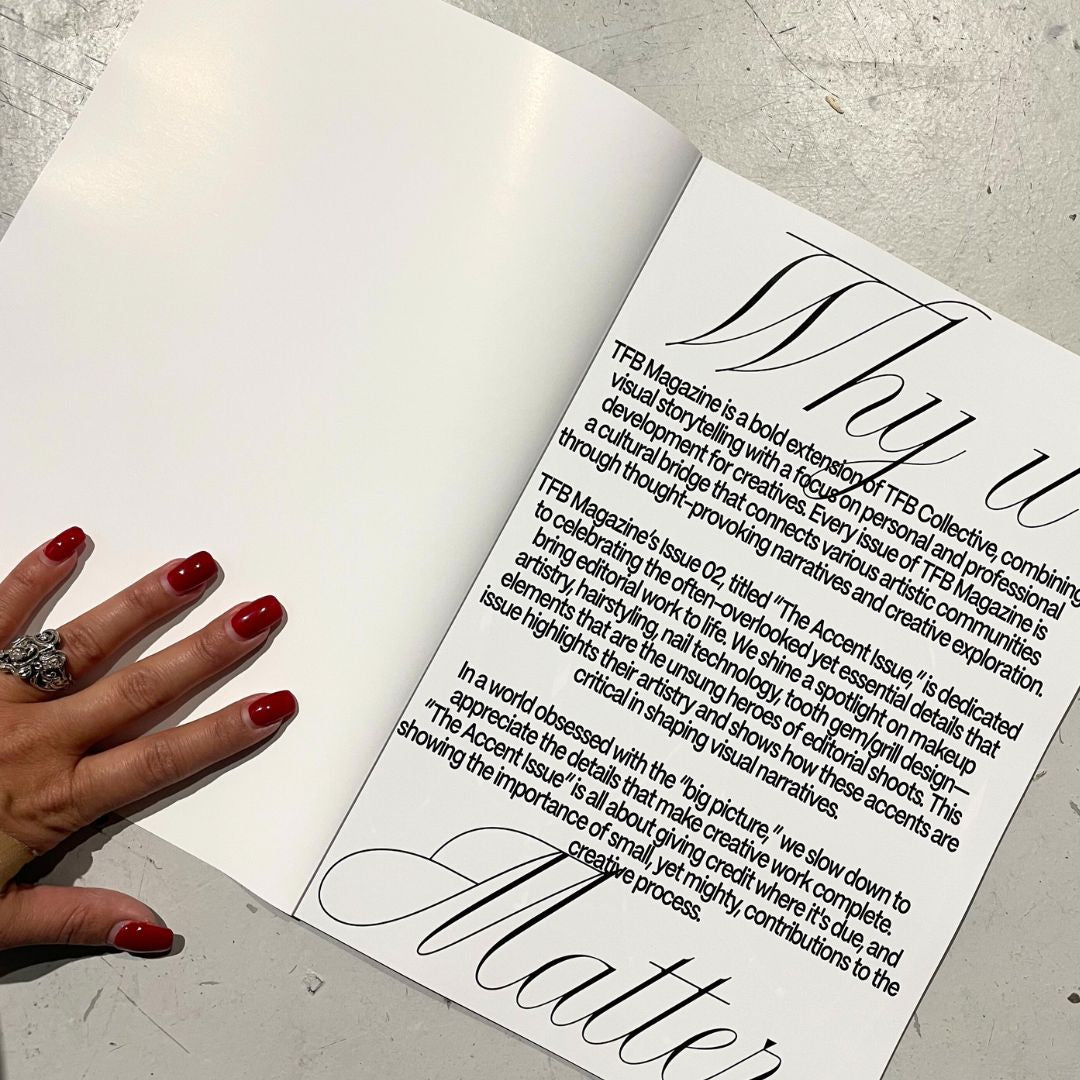 Why u
TFB Magazine is a bold extension of TFB Collective, combining
visual storytelling with a focus on personal and professional
development for creatives. Every issue of TFB Magazine is
a cultural bridge that connects various artistic communities
through thought-provoking narratives and creative exploration.
TFB Magazine's Issue 02, titled "The Accent Issue," is dedicated
to celebrating the often-overlooked yet essential details that
bring editorial work to life. We shine a spotlight on makeup
artistry, hairstyling, nail technology, tooth gem/grill design—
elements that are the unsung heroes of editorial shoots. This
issue highlights their artistry and shows how these accents are
critical in shaping visual narratives.
In a world obsessed with the "big picture," we slow down to
appreciate the details that make creative work complete.
"The Accent Issue" is all about giving credit where it's due, and
showing the importance of small, yet mighty, contributions to the
creative process.
Matter